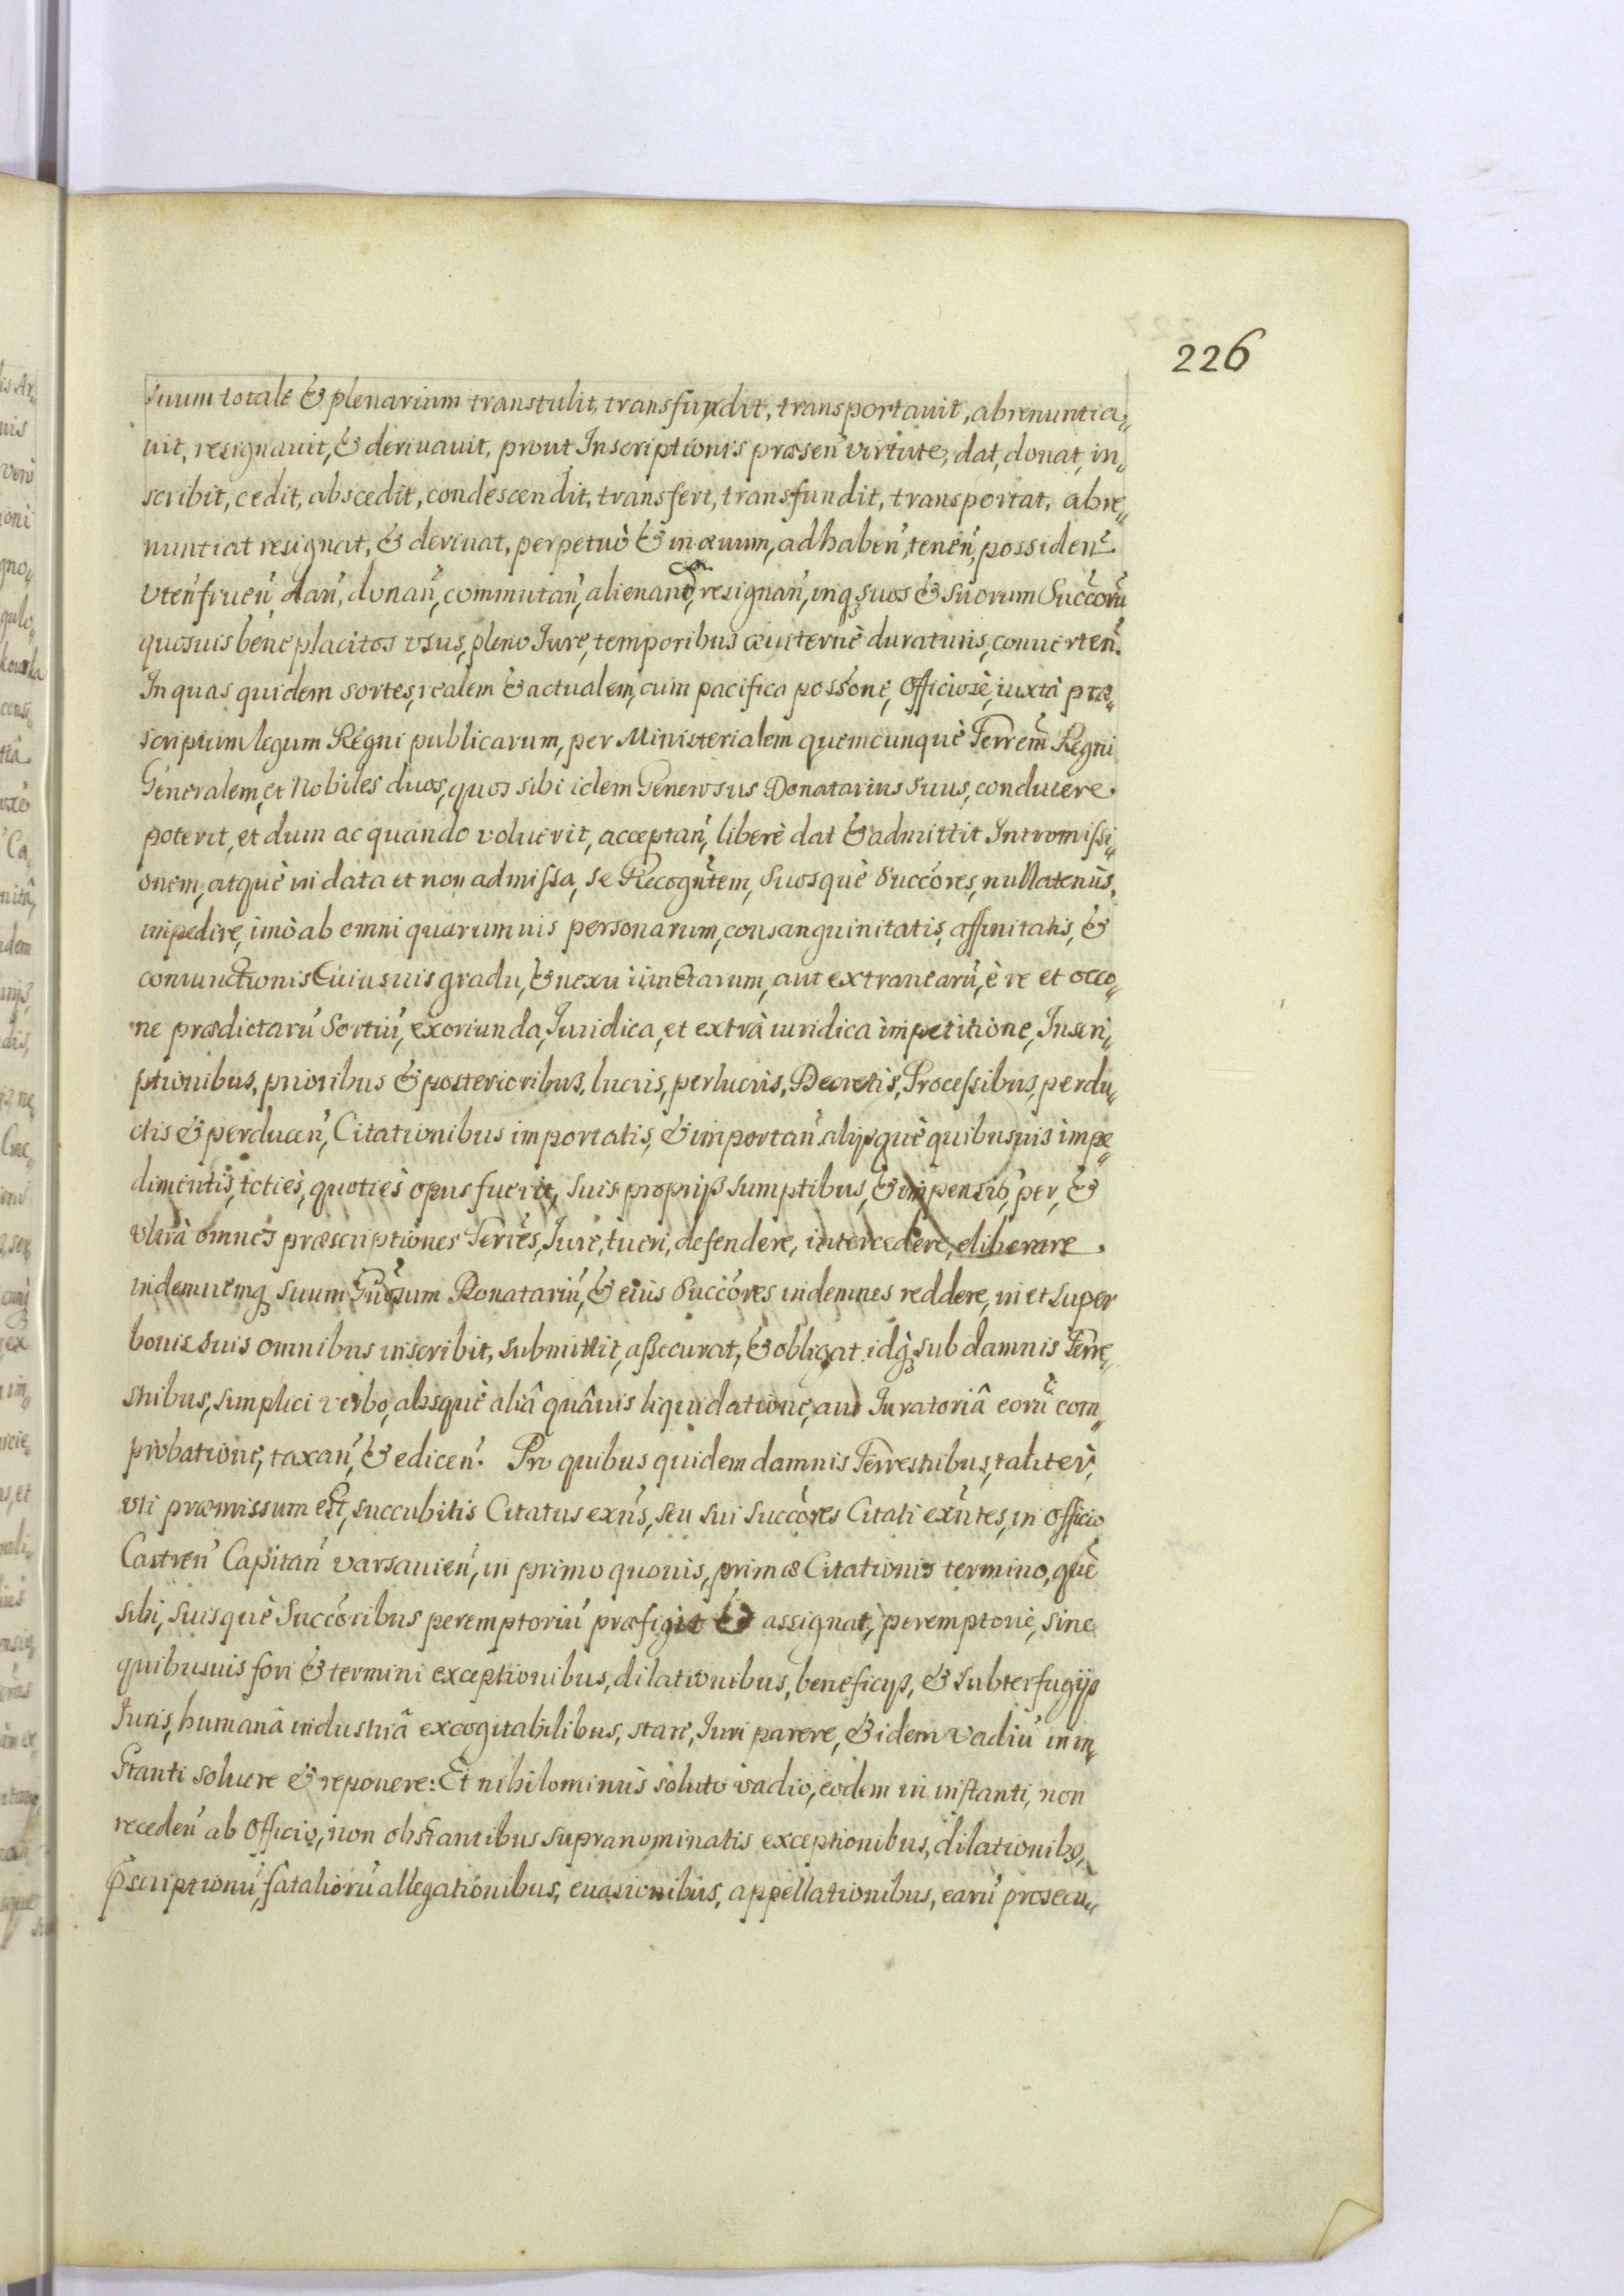 226
suum totale & plenarium transtulit, transfundit, transportauit, abrenuntia„
uit, resignauit, & deriuauit, prout Inscriptionis præsen̄ virtute, dat, donat, in„
scribit, cedit, abscedit, condescendit, transfert, transfundit, transportat, abre„
nuntiat resignat, & deriuat, perpetuò & in æuum, ad haben̄, tenen̄, possiden̄
vten̄ fruen̄, dan̄, donan̄, commutan̄, alienan̄, resignan̄, inq̧ suos & suorum Succorū
quosuis beneplacitos vsus, pleno Iure, temporibus æuiternè duraturis, conuerten̄.
In quas quidem sortes, realem & actualem, cum pacifica possone, Officiosè, iuxta præ„
scriptum legum Regni publicarum, per Ministerialem quemcunquè Terrem̄ Regni
Generalem, et Nobiles duos, quos sibi idem Generosus Donatarius suus, conducere
poterit, et dum ac quando voluerit, acceptan̄, liberè dat & admittit Intromissi„
onem, atquè in data et non admissa, se Recognt̄em, Suosquè Succores, nullatenùs,
impedire, imò ab omni quarumuis personarum, consanguinitatis, affinitatis, &
coniunctionis Cuiusuis gradu, & nexu iunctarum, aut extranearū, è re et occo„
ne prædictarū Sortiū, exoriunda, Iuridica, et extrà iuridica impetitione, Inscri„
ptionibus, prioribus & posterioribus, lucris, perlucris, Decretis, Processibus, perdu„
ctis & perducen̄, Citationibus importatis, & importan̄ alijsquè quibusuis impe„
dimentis, totiès, quotiès opus fuerit, suis proprijs sumptibus, & impensis, per, &
vltrà omnes præscriptiones Terres, Iure, tueri, defendere, intercedere, eliberare
indemnemq̧ suum Gn̄osum Donatariū, & eius Succores indemnes reddere, in et super
bonis suis omnibus inscribit, submittit, assecurat, & obligat. idq̧ sub damnis Terre„
stribus, simplici verbo, absquè aliâ quâuis liquidatione, aut Iuratoriâ eorū com„
probatione, taxan̄, & edicen̄. Pro quibus quidem damnis Terrestribus, taliter,
vti præmissum est, succubitis Citatus exn̄s, seu sui Succores Citati exn̄tes, in Officio
Castren̄ Capitan̄ Varsauien̄, in primo quouis, primæ Citationis termino, quē
sibi, suisquè Succoribus peremptoriū præfigit & assignat, peremptoriè, sine
quibusuis fori & termini exceptionibus, dilationibus, beneficijs, & subterfugijs
Iuris, humanâ industriâ excogitabilibus, stare, Iuri parere, & idem Vadiū in in„
stanti soluere & reponere: Et nihilominùs soluto vadio, eodem in instanti, non
receden̄ ab Officio, non obstantibus supranominatis exceptionibus, dilationibꝫ,
p̄scriptionū, fataliorū allegationibus, euasionibus, appellationibus, earū prosecu„